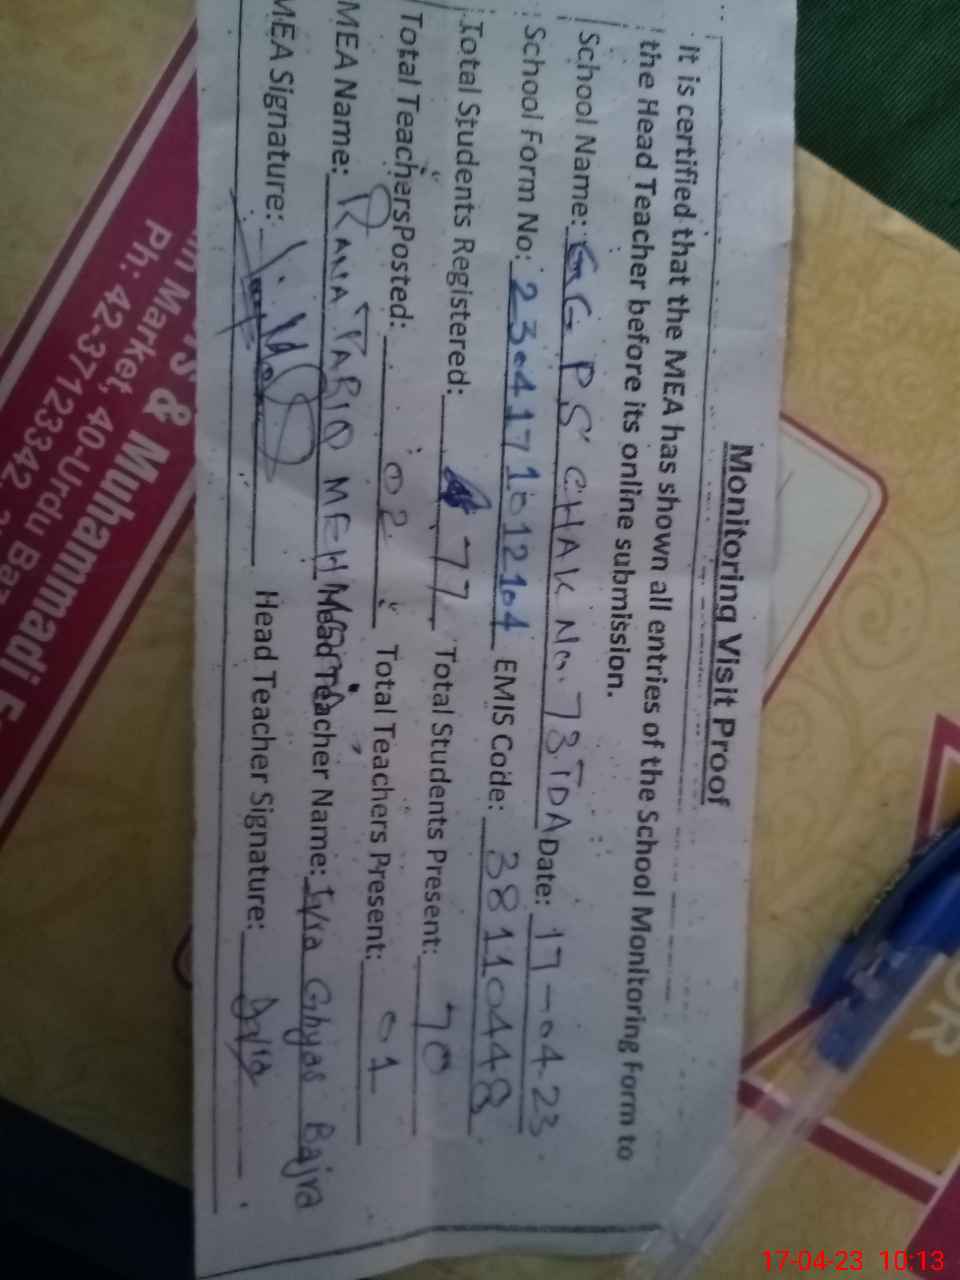 Monitoring Visit Proof
It is certified that the MEA has shown all entries of the School Monitoring Form to
the Head Teacher before its online submission.
School Name: GG PS CHAK No. 73 TDA Date: 17-04-23
School Form No: 2304171012104 EMIS Code: 38110448
Total Students Registered: 77 Total Students Present: 70
Total Teachers Posted: 02 Total Teachers Present: 01
MEA Name: RANA TARIQ Head Teacher Name: Ghyas Bajra
MEA Signature: Head Teacher Signature:
& Muhammadi
Market, 40-Urdu
Ph: 42-37123342
OR
17-04-23 10:13